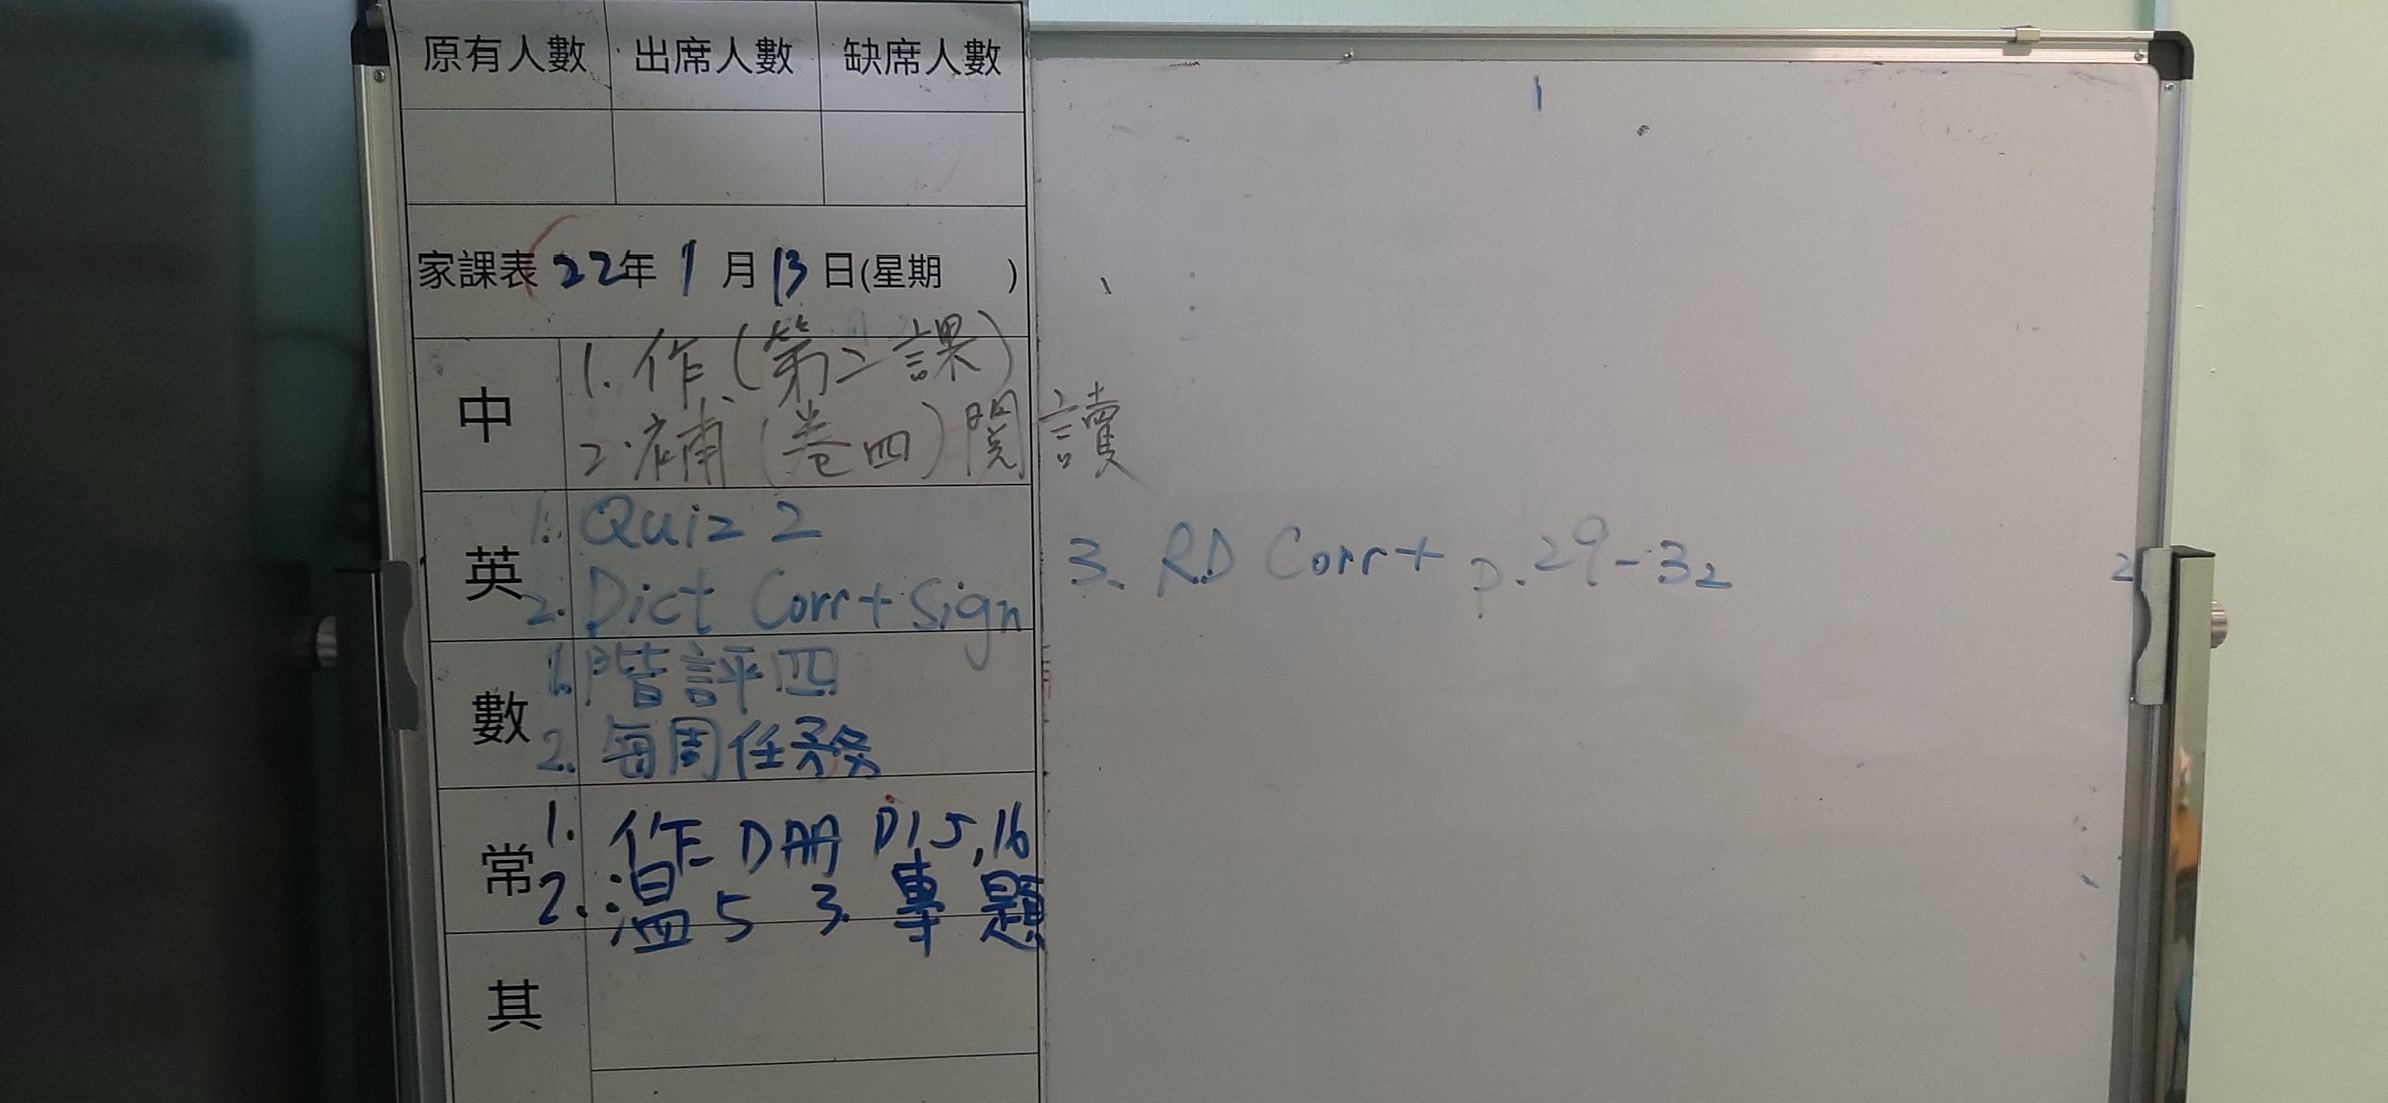 原有人數 出席人數 缺席人數
家課表 22年 1月 13日(星期 )
中
1. 作(第二課)
2. 補(卷四)閱讀
英
1. Quiz 2
2. Dict Corr + Sign
3. RD Corr + p.29-32
數
1. 階評四
2. 每周任務
常
1. 作D冊 P15,16
2. 溫5 3. 專題
其